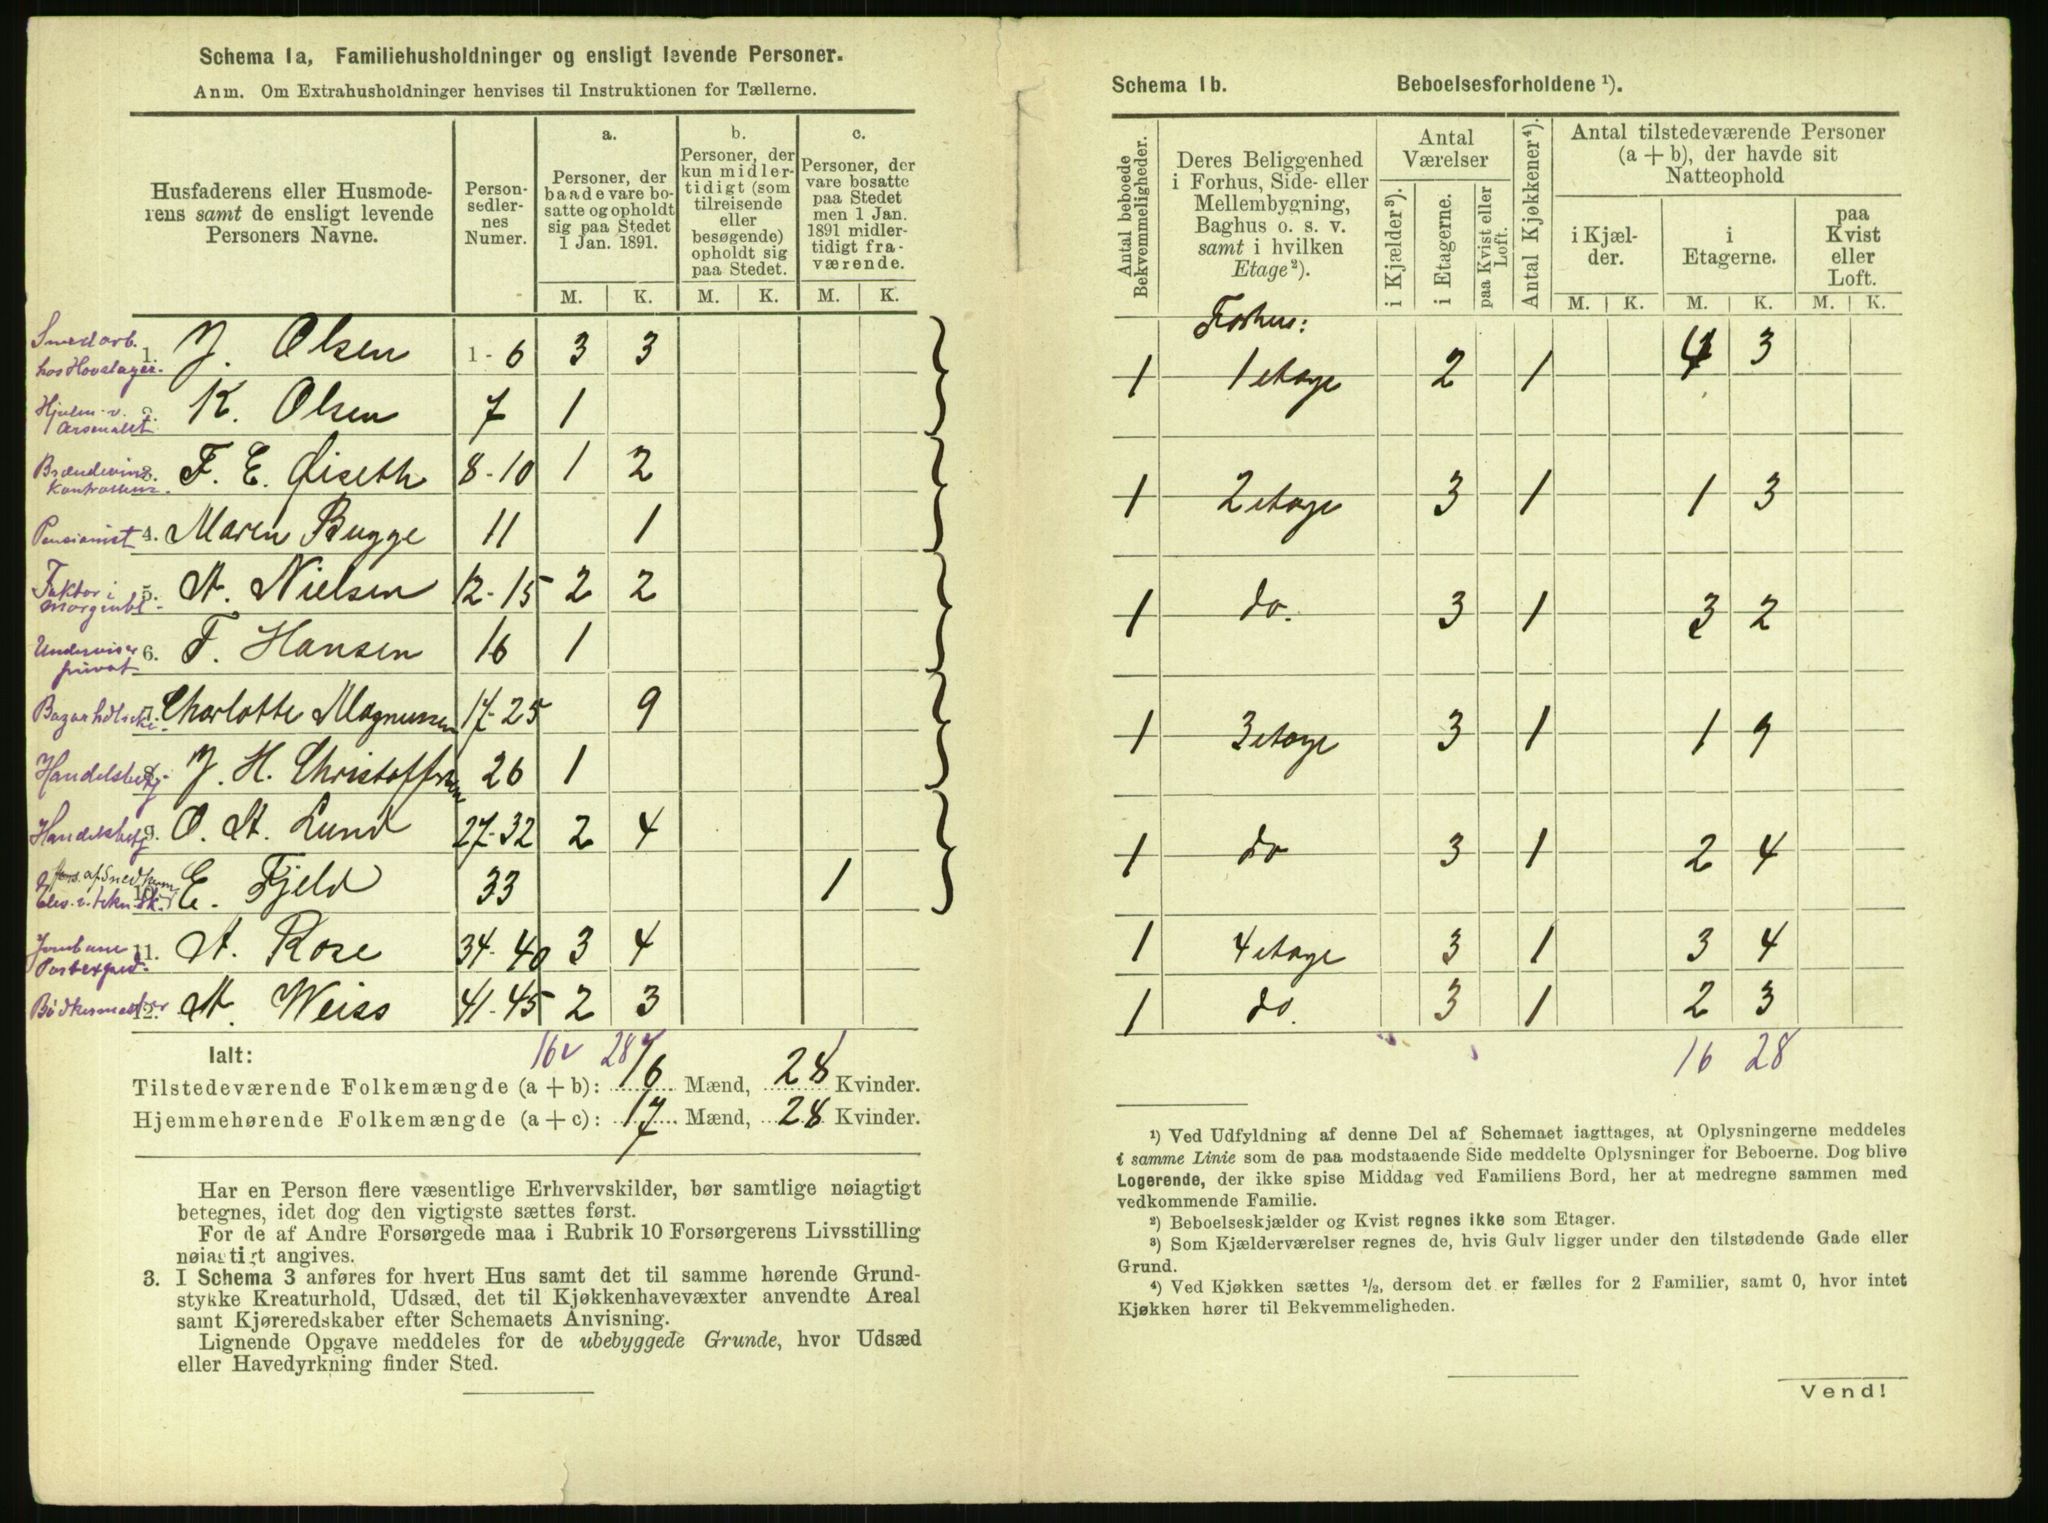 Schema 1a, Familiehusholdninger og ensligt levende Personer.
Anm. Om Extrahusholdninger henvises til Instruktionen for Tællerne.
Husfaderens eller Husmode-
rens samt de ensligt levende
Personers Navne.
Person-
sedler-
nes
Numer.
a.
Personer, der
baade vare bo-
satte og opholdt
sig paa Stedet
1 Jan. 1891.
b.
Personer, der
kun midler-
tidigt (som
tilreisende
eller
besøgende)
opholdt sig
paa Stedet.
c.
Personer, der
vare bosatte
paa Stedet
men 1 Jan.
1891 midler-
tidigt fra-
værende.
M. K. M. K. M. K.
Smedarb.
hos Hovslager. 1. J. Olsen 1-6 3 3
Hjelm. v.
Arsenalet 2. K. Olsen 7 1
Brændevins
Kontrolleur. 3. F. E. Øiseth 8-10 1 2
Pensionist 4. Maren Bugge 11 1
Faktor i
Morgenbl. 5. A. Nielsen 12-15 2 2
Underviser
privat 6. F. Hansen 16 1
7. Charlotte Magnussen 17-25 9
Handelsbetj. 8. J. H. Christoffersen 26 1
Handelsbetj. 9. O. A. Lund 27-32 2 4
fors. af Snedkerm.
Elev v. tekn. Sk. 10. E. Fjeld 33 1
Jernbane
Postexped. 11. A. Rose 34-40 3 4
Bødkermester 12. A. Weiss 41-45 2 3
Ialt: 16 28 1
Tilstedeværende Folkemængde (a + b): 16 Mænd, 28 Kvinder.
Hjemmehørende Folkemængde (a + c): 17 Mænd, 28 Kvinder.
Har en Person flere væsentlige Erhvervskilder, bør samtlige nøiagtigt
betegnes, idet dog den vigtigste sættes først.
For de af Andre Forsørgede maa i Rubrik 10 Forsørgerens Livsstilling
nøiagtigt angives.
3. I Schema 3 anføres for hvert Hus samt det til samme hørende Grund-
stykke Kreaturhold, Udsæd, det til Kjøkkenhavevæxter anvendte Areal
samt Kjøreredskaber efter Schemaets Anvisning.
Lignende Opgave meddeles for de ubebyggede Grunde, hvor Udsæd
eller Havedyrkning finder Sted.
Schema 1b. Beboelsesforholdene ¹).
Antal beboede
Bekvemmeligheder.
Deres Beliggenhed
i Forhus, Side- eller
Mellembygning,
Baghus o. s. v.
samt i hvilken
Etage²).
Antal
Værelser
i Kjælder³).
i Etagerne.
paa Kvist eller
Loft.
Antal Kjøkkener⁴).
Antal tilstedeværende Personer
(a + b), der havde sit
Natteophold
i Kjæl-
der.
i
Etagerne.
paa
Kvist
eller
Loft.
M. K. M. K. M. K.
Forhus:
1 1 etage 2 1 4 3
1 2 etage 3 1 1 3
1 do. 3 1 3 2
1 3 etage 3 1 1 9
1 do 3 1 2 4
1 4 etage 3 1 3 4
1 do. 3 1 2 3
16 28
¹) Ved Udfyldning af denne Del af Schemaet iagttages, at Oplysningerne meddeles
i samme Linie som de paa modstaaende Side meddelte Oplysninger for Beboerne. Dog blive
Logerende, der ikke spise Middag ved Familiens Bord, her at medregne sammen med
vedkommende Familie.
²) Beboelseskjælder og Kvist regnes ikke som Etager.
³) Som Kjælderværelser regnes de, hvis Gulv ligger under den tilstødende Gade eller
Grund.
⁴) Ved Kjøkken sættes ½, dersom det er fælles for 2 Familier, samt 0, hvor intet
Kjøkken hører til Bekvemmeligheden.
Vend!